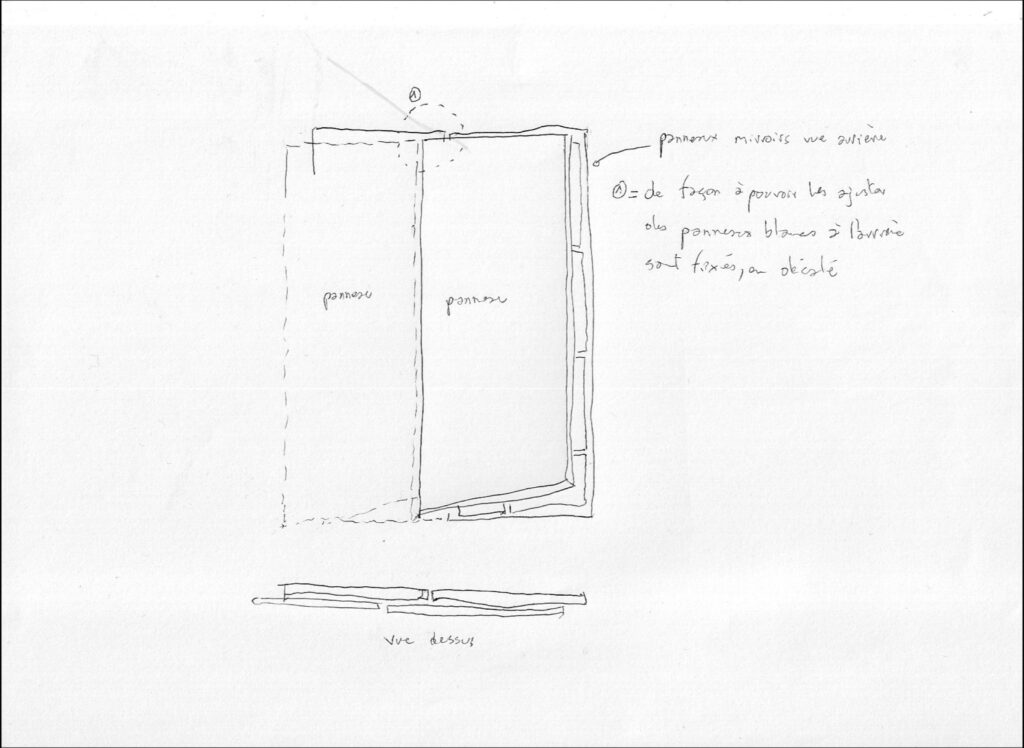 ①
panneaux miroirs vue arrière
① = de façon à pouvoir les ajuster
des panneaux blancs à l'arrière
sont fixés, en décalé
panneau
panneau
vue dessus